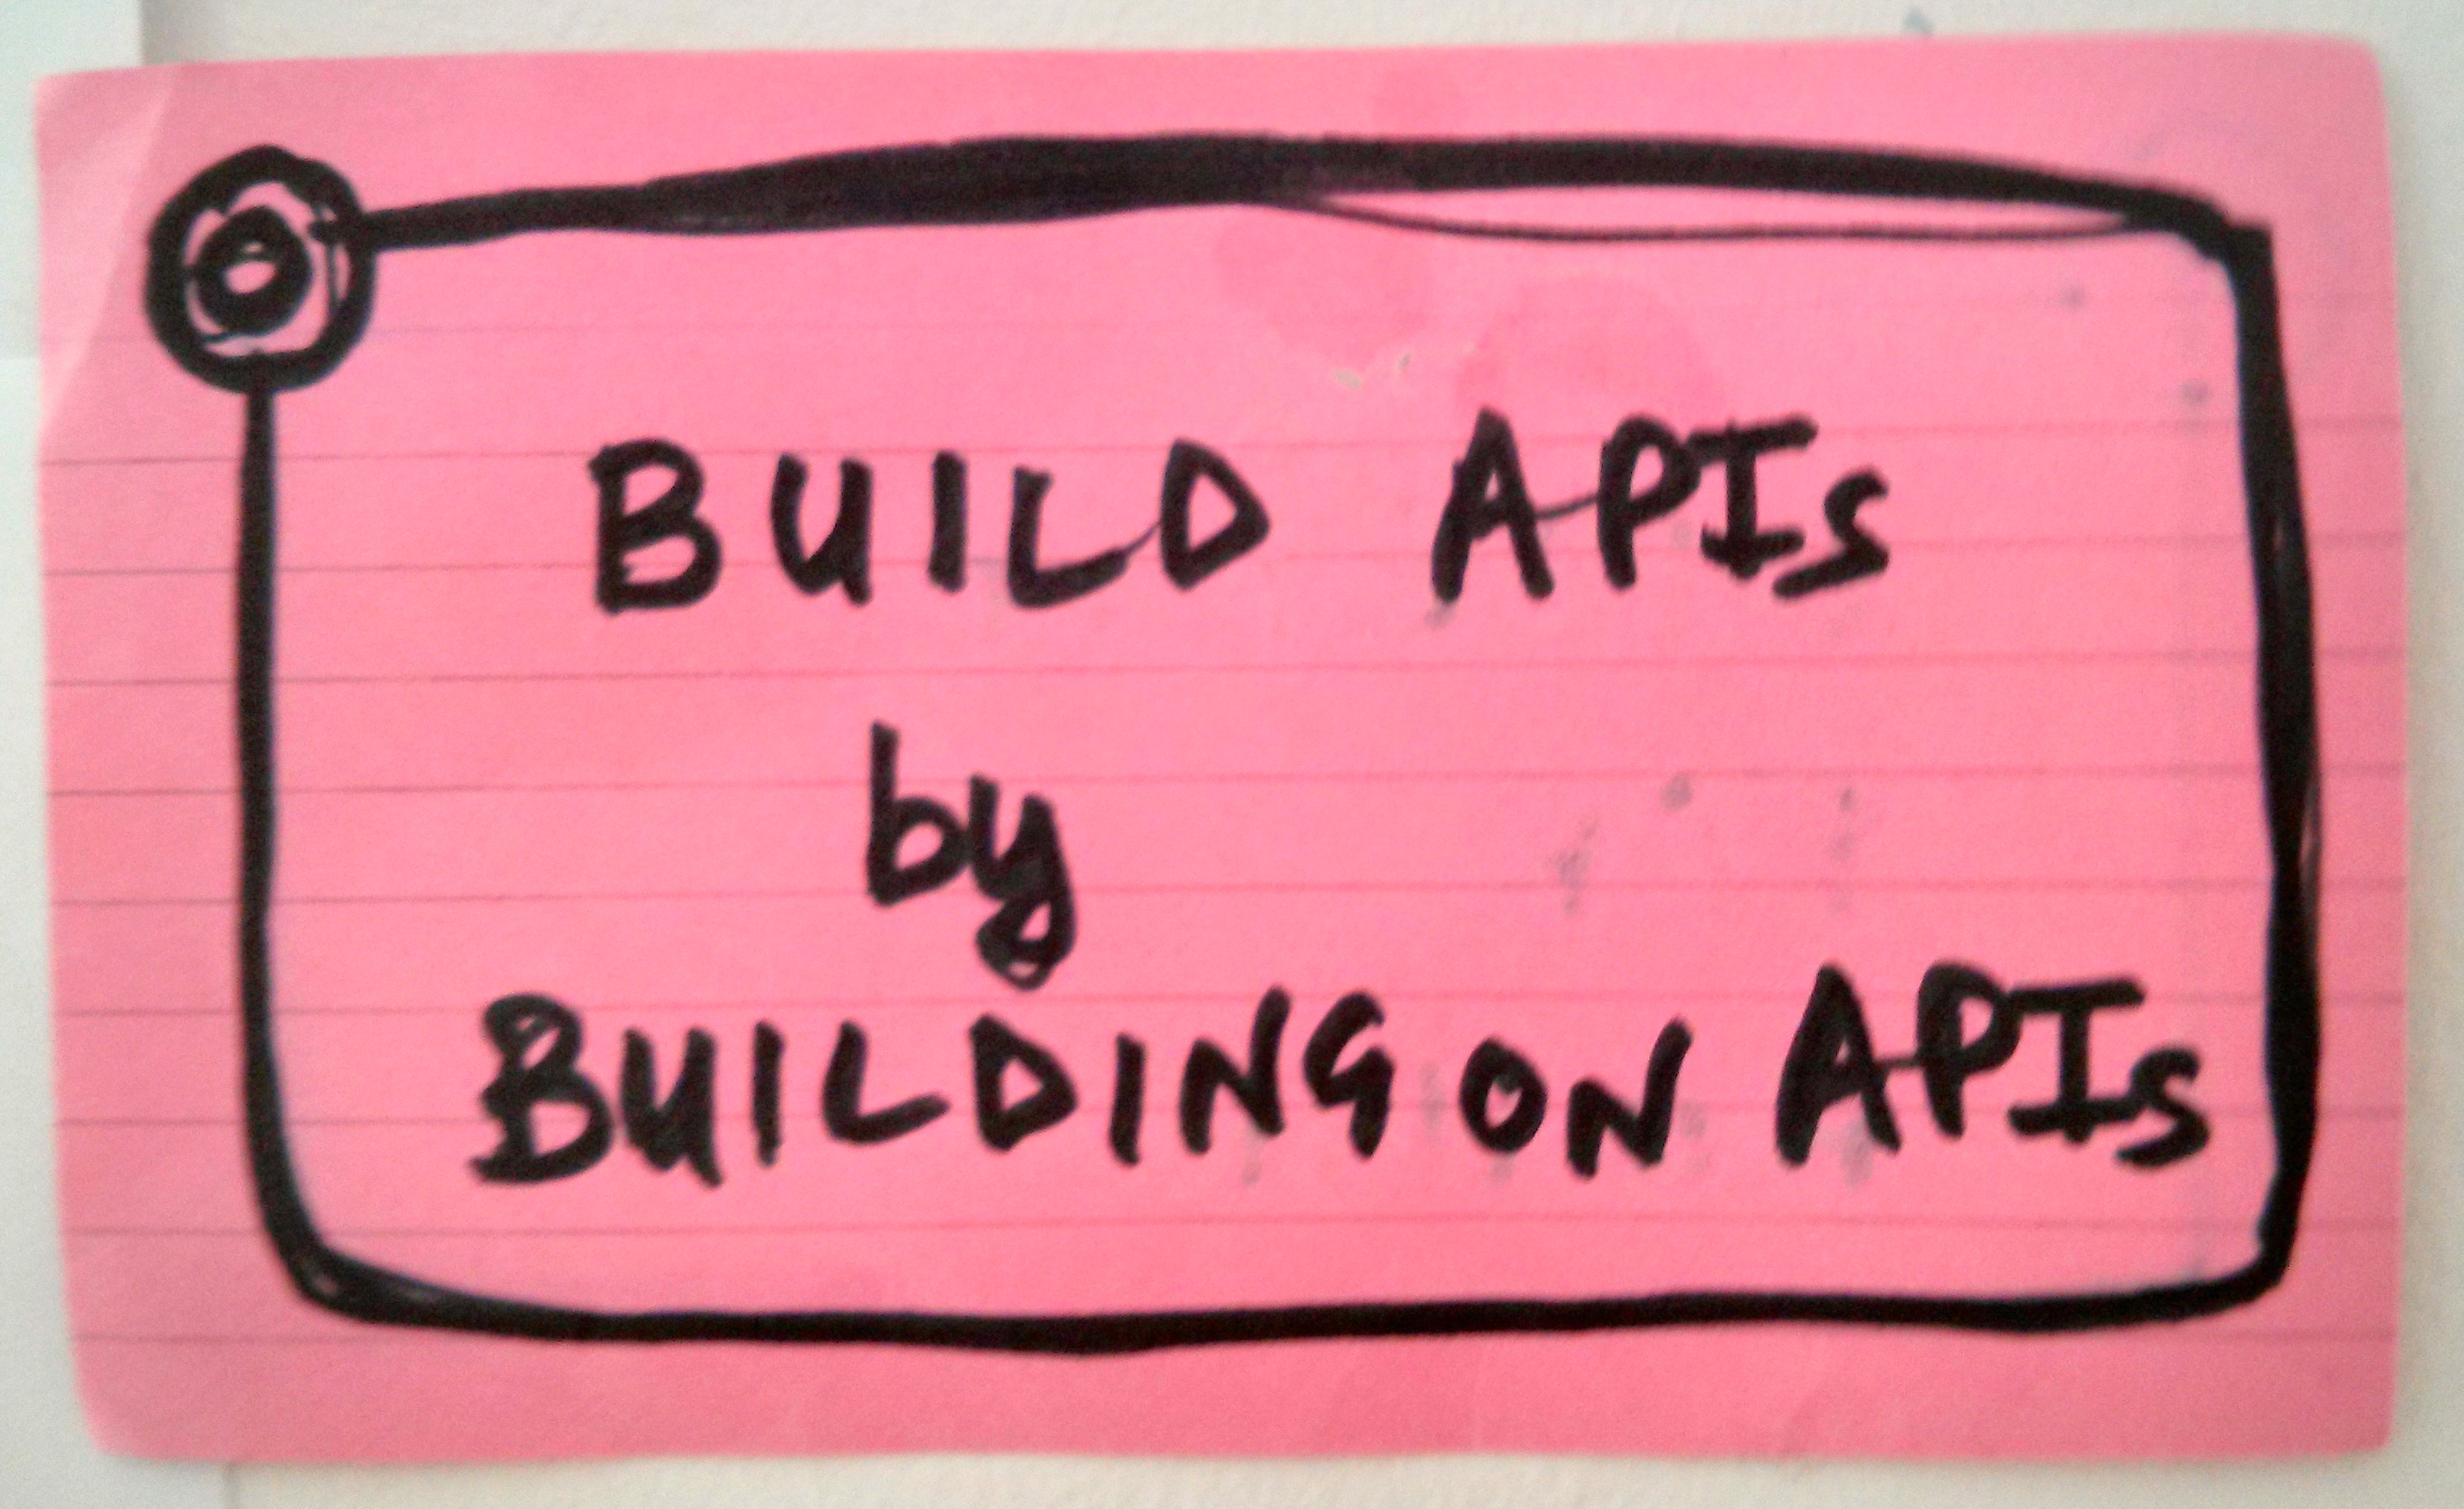 BUILD APIs
by
BUILDING ON APIs